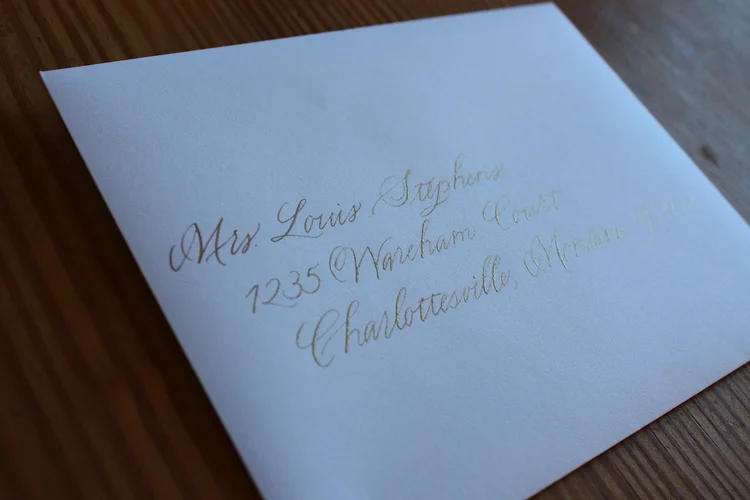 Mrs. Louis Stephens
1235 Wareham Court
Charlottesville, Montana